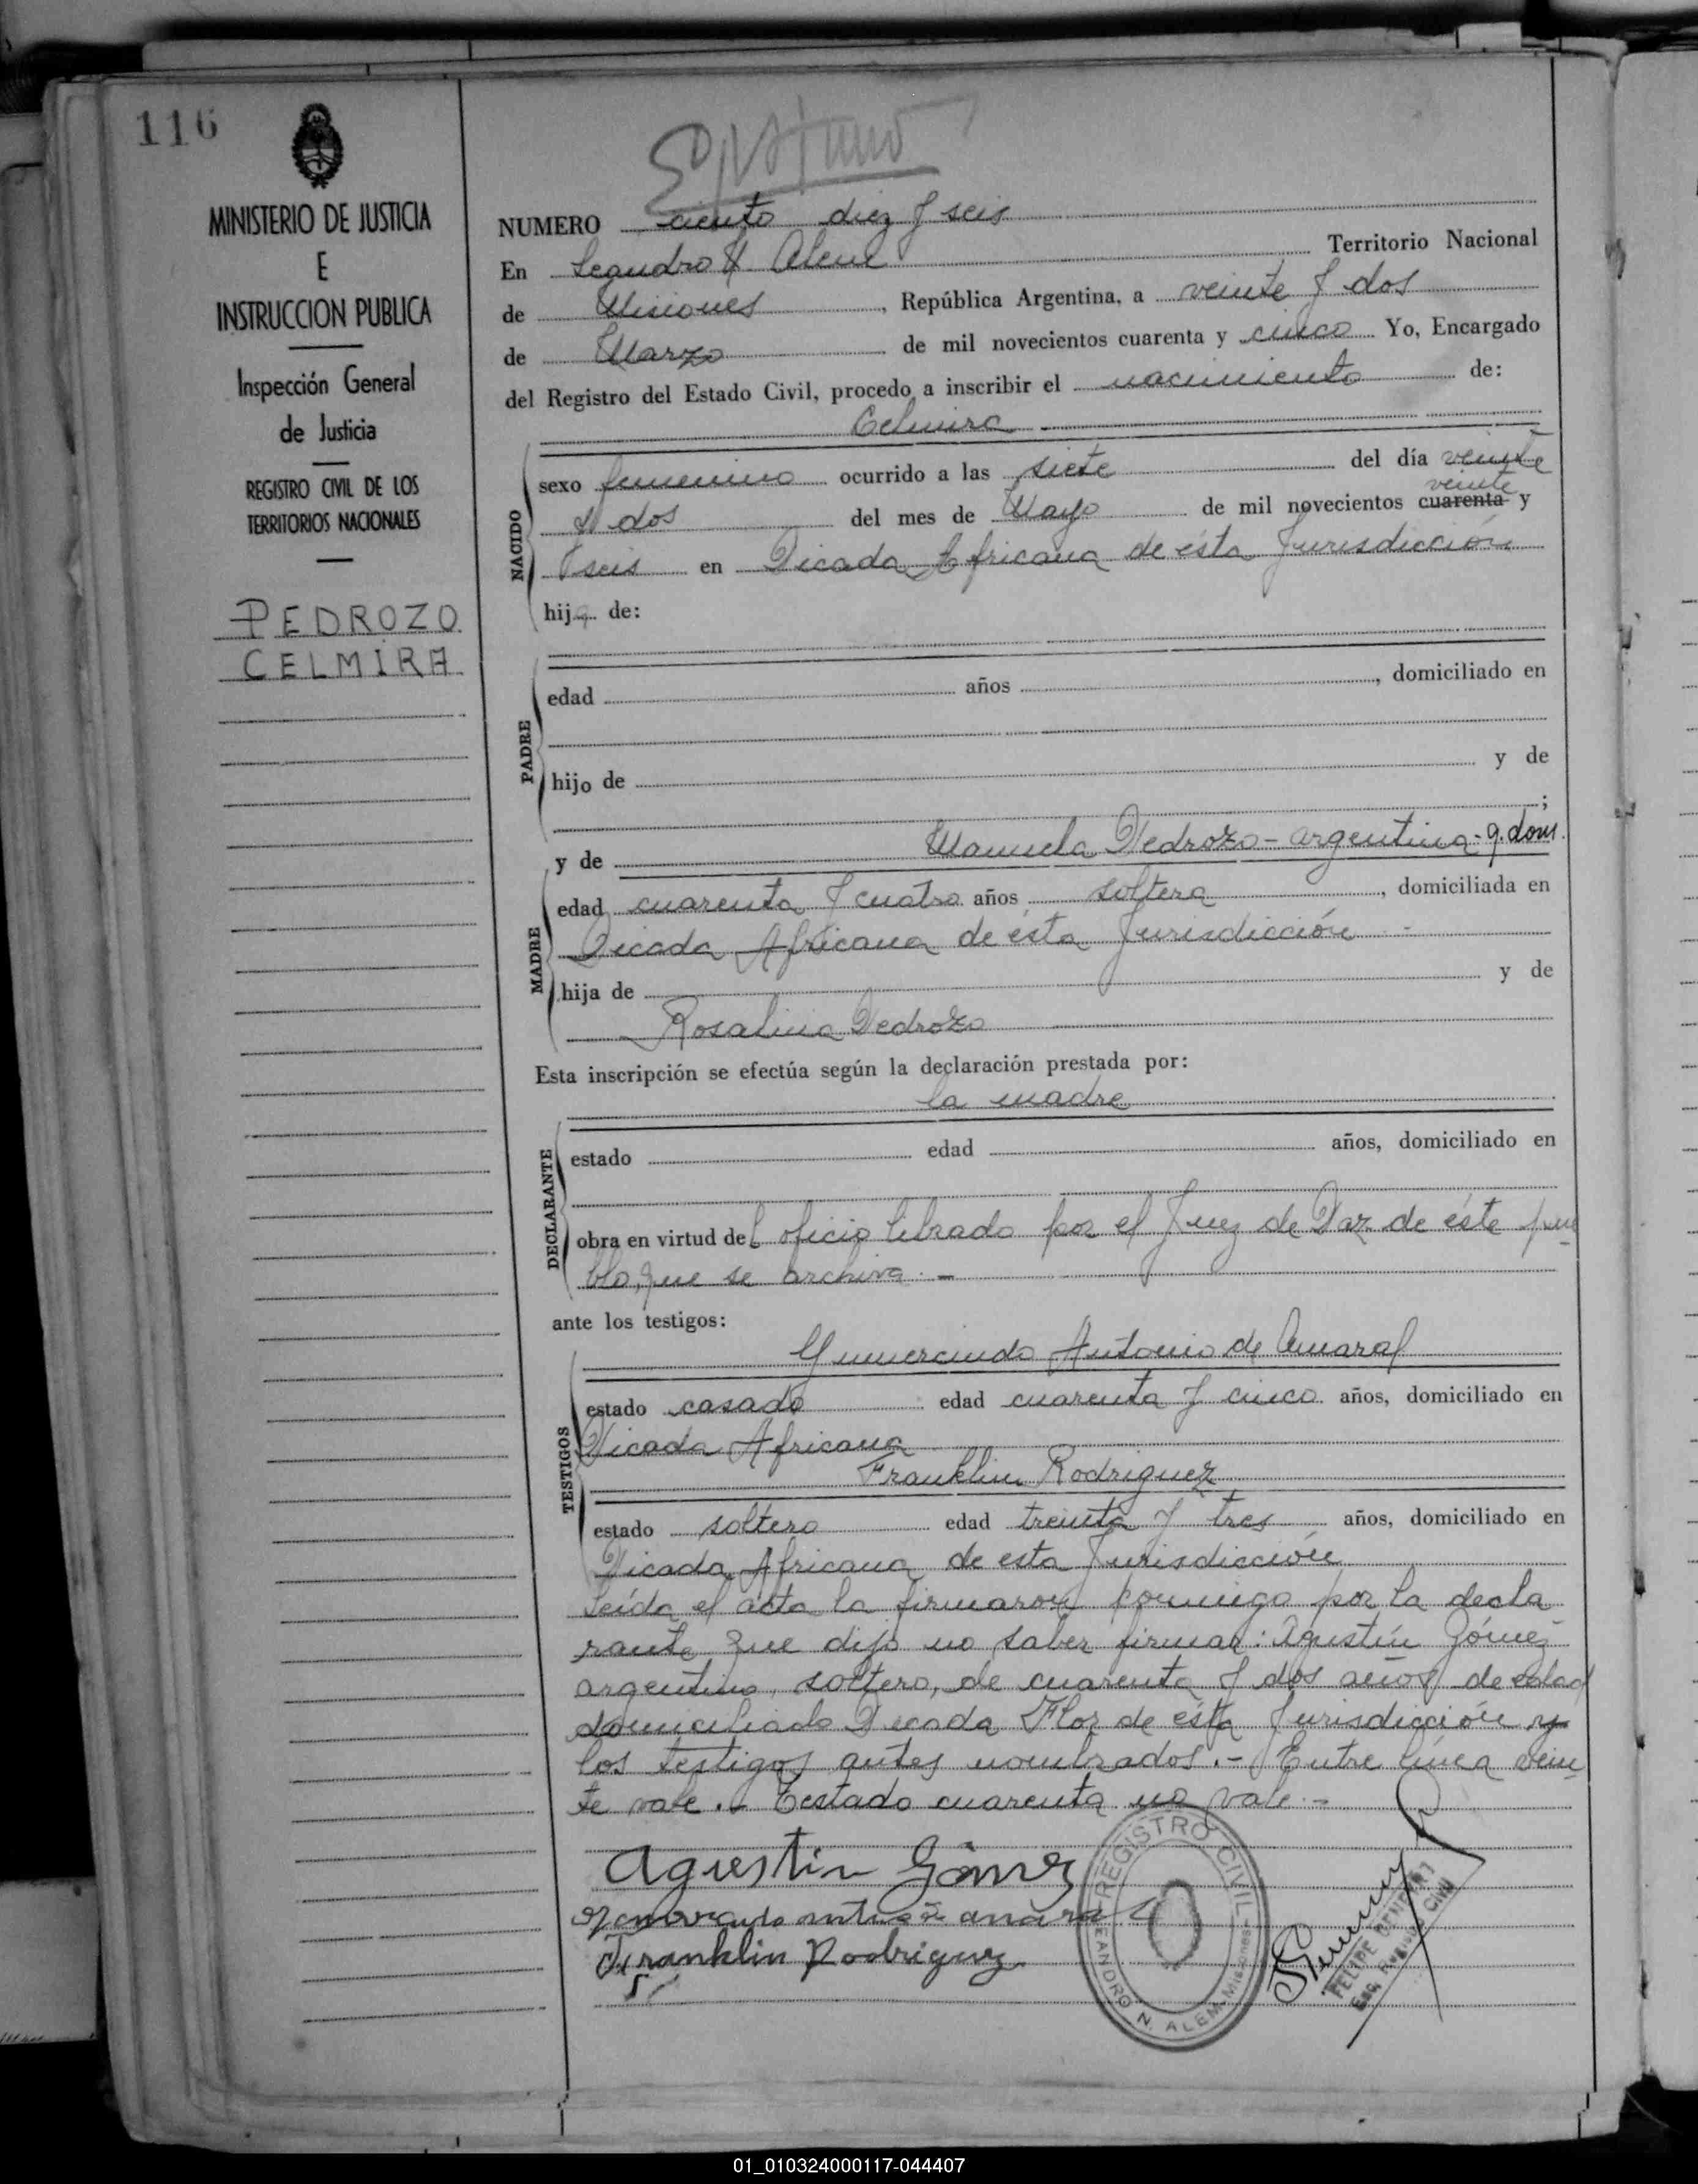 116
MINISTERIO DE JUSTICIA
E
INSTRUCCION PUBLICA
Inspección General
de Justicia
REGISTRO CIVIL DE LOS
TERRITORIOS NACIONALES
PEDROZO
CELMIRA
NUMERO ciento diez y seis
En Leandro N. Alem Territorio Nacional
de Misiones, República Argentina, a veinte y dos
de Marzo de mil novecientos cuarenta y cinco Yo, Encargado
del Registro del Estado Civil, procedo a inscribir el nacimiento de:
Celmira
NACIDO
sexo femenino ocurrido a las siete del día veinte
veinte
y dos del mes de Mayo de mil novecientos cuarenta y
seis en Picada Africana de ésta Jurisdicción
hija de:
PADRE
edad años, domiciliado en
hijo de y de
;
MADRE
y de Manuela Pedrozo - argentina - q. dom.
edad cuarenta y cuatro años soltera, domiciliada en
Picada Africana de ésta Jurisdicción -
hija de y de
Rosalina Pedrozo
Esta inscripción se efectúa según la declaración prestada por:
la madre
DECLARANTE
estado edad años, domiciliado en
obra en virtud del oficio librado por el Juez de Paz de éste pue
blo, que se archiva. -
ante los testigos:
TESTIGOS
Gumercindo Antonio de Amaral
estado casado edad cuarenta y cinco años, domiciliado en
Picada Africana
Franklin Rodriguez
estado soltero edad treinta y tres años, domiciliado en
Picada Africana de esta Jurisdicción
Leída el acta la firmaron conmigo por la decla
rante que dijo no saber firmar: Agustín Gómez
argentino, soltero, de cuarenta y dos años de edad
domiciliado Picada Flor de ésta Jurisdicción y
los testigos antes nombrados. - Entre línea vein
te vale. - Testado cuarenta no vale. -
Agustin Gómez
Franklin Rodriguez
REGISTRO CIVIL
LEANDRO N. ALEM Misiones
FELIPE
Enc. Registro Civil
01_010324000117-044407